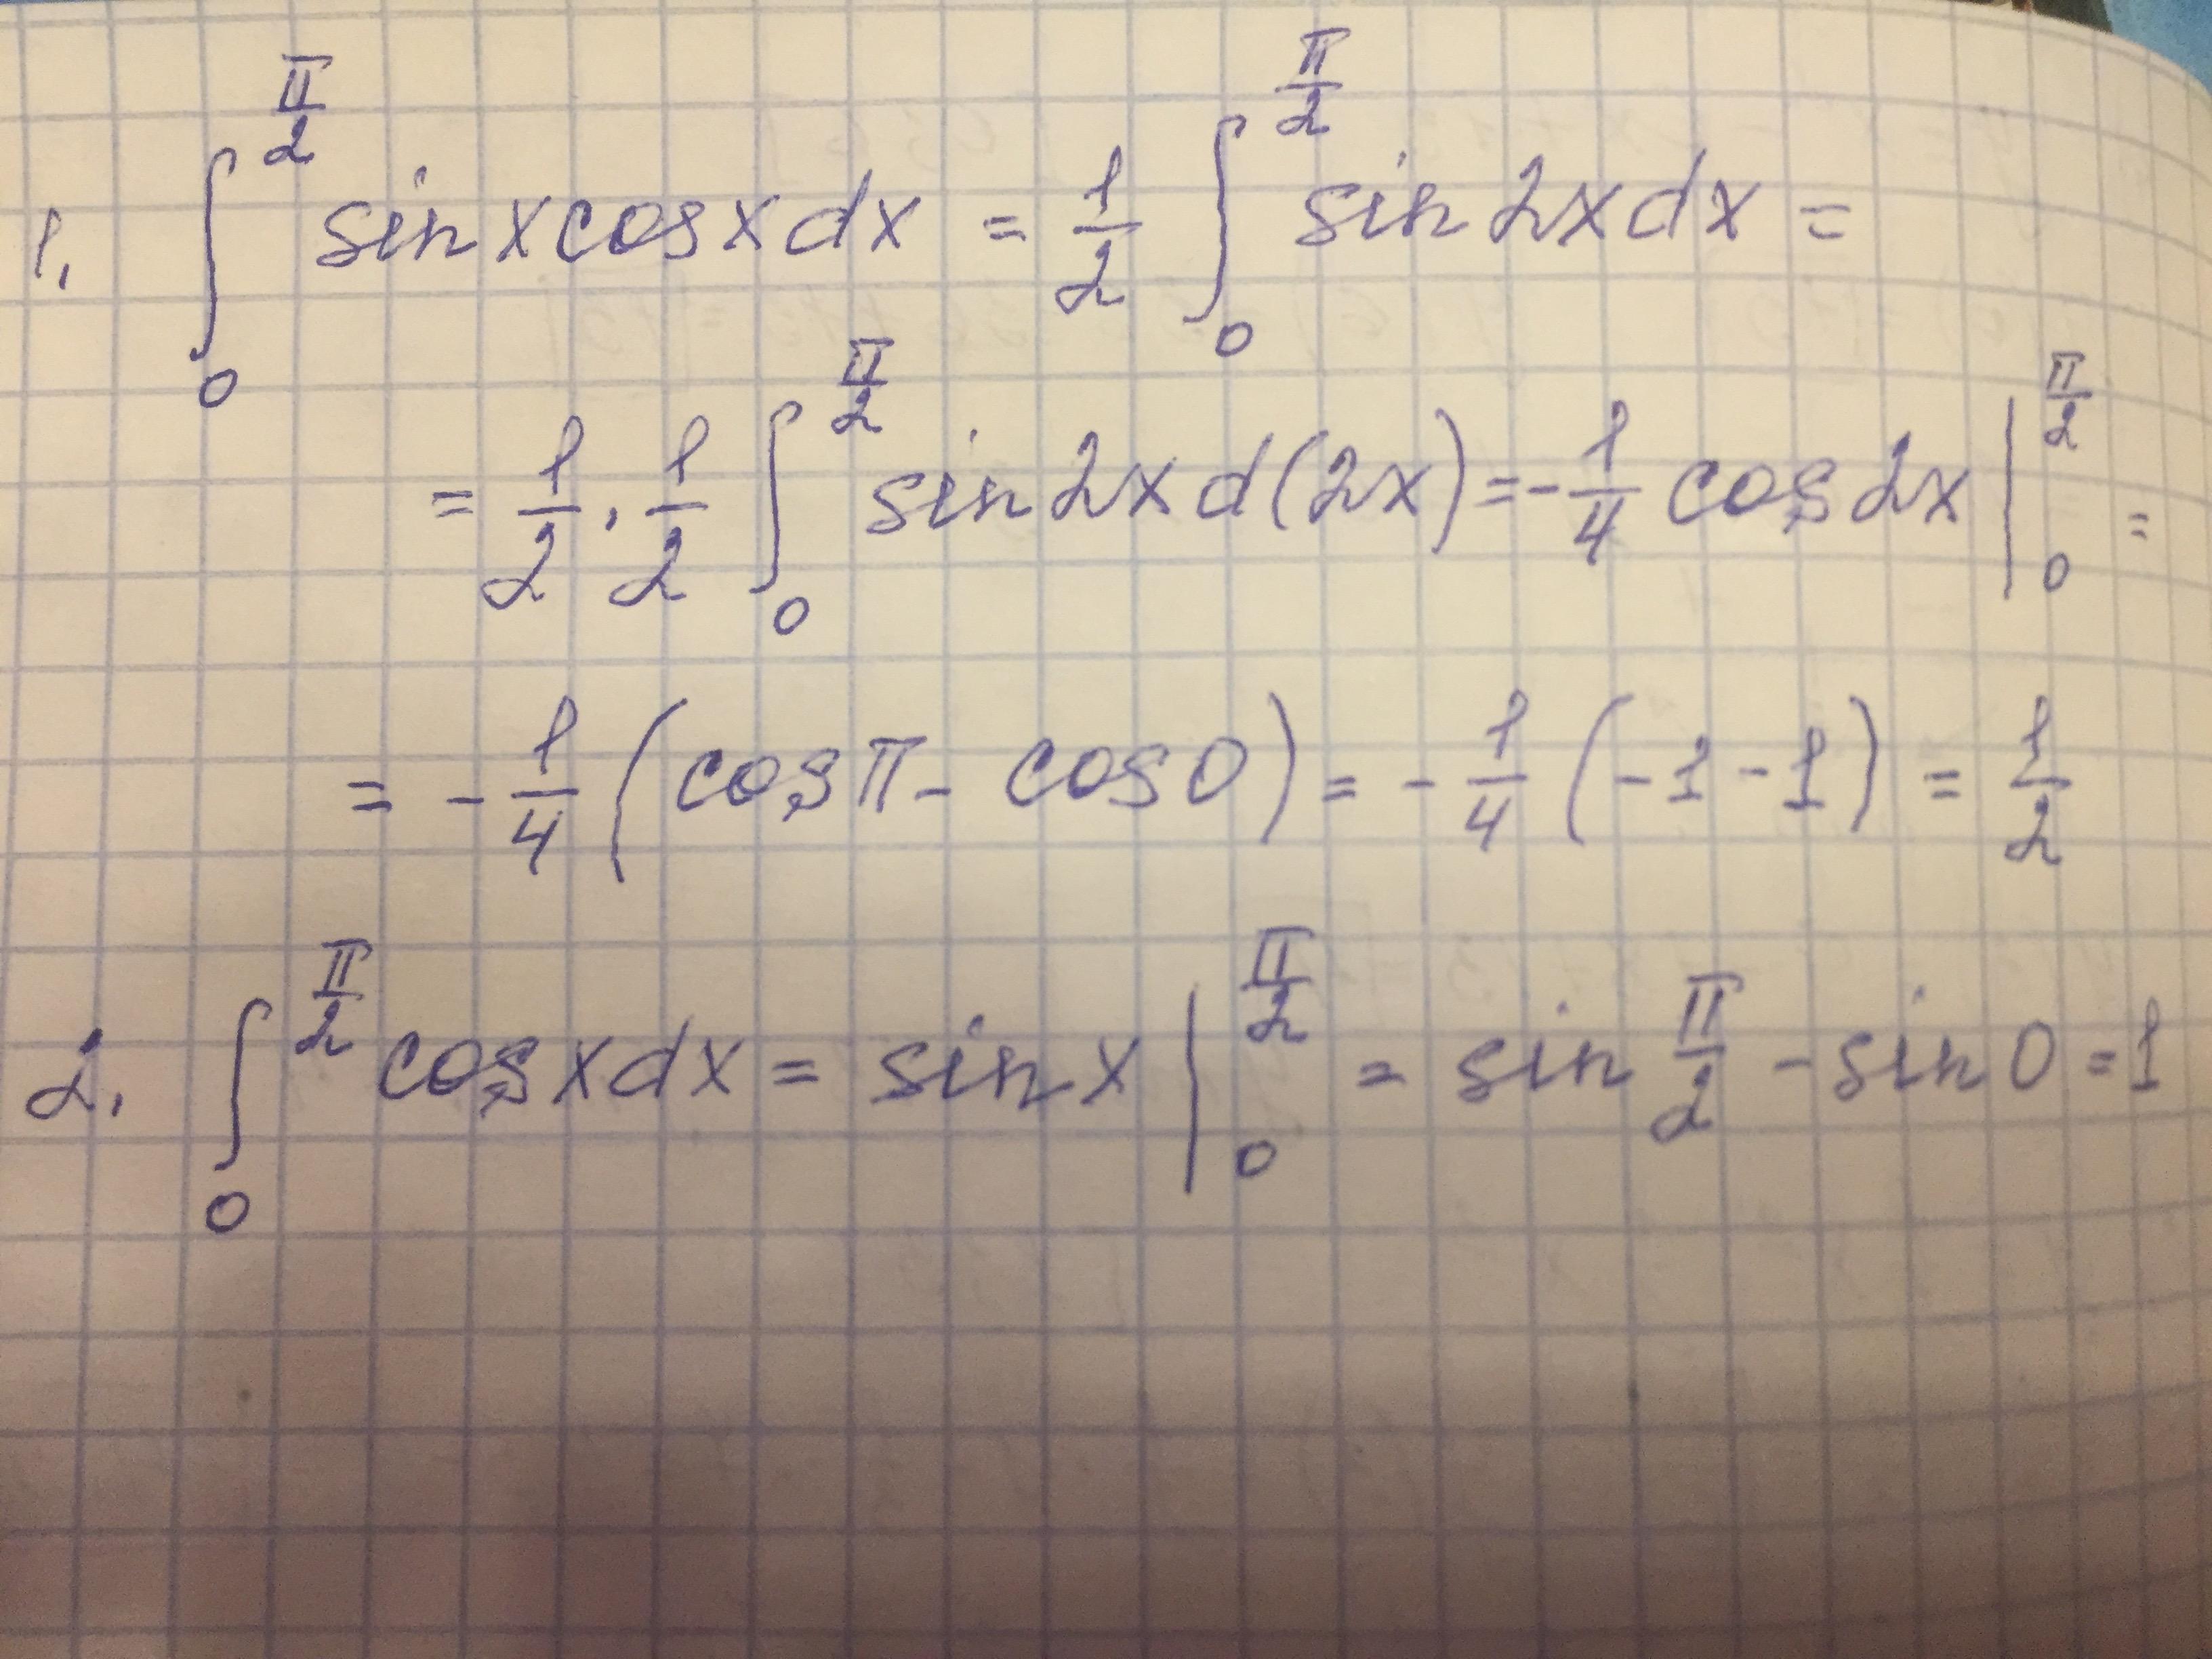 1. ∫₀^(π/2) sin x cos x dx = 1/2 ∫₀^(π/2) sin 2x dx =
= 1/2 · 1/2 ∫₀^(π/2) sin 2x d(2x) = -1/4 cos 2x |₀^(π/2) =
= -1/4 (cos π - cos 0) = -1/4 (-1 - 1) = 1/2
2. ∫₀^(π/2) cos x dx = sin x |₀^(π/2) = sin π/2 - sin 0 = 1